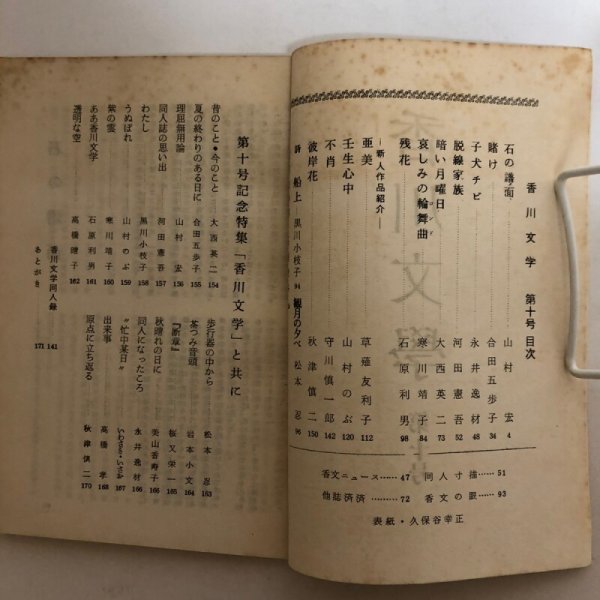 香川文学　第十号目次
石の譜面　山村　宏　4
賭け　合田五歩子　34
子犬チビ　永井逸材　48
脱線家族　河田憲吾　52
暗い月曜日　大西英二　73
哀しみの輪舞曲　寒川靖子　84
残花　石原利男　98
―新人作品紹介―
亜美　草薙友利子　112
壬生心中　山村のぶ　120
不肖　守川慎一郎　142
彼岸花　秋津慎二　150
詩　船上　黒川小枝子　94　観月の夕べ　松本　忍　96
香文ニュース……47　同人寸描……51
他誌済済……72　香文の眼……93
表紙・久保谷幸正
第十号記念特集「香川文学」と共に
昔のこと・今のこと　大西英二　154
夏の終わりのある日に　合田五歩子　155
理屈無用論　山村　宏　156
同人誌の思い出　河田憲吾　157
わたし　黒川小枝子　158
うぬぼれ　山村のぶ　159
紫の雲　寒川靖子　160
ああ香川文学　石原利男　161
透明な空　高橋瞳子　162
歩行器の中から　松本　忍　163
茶つみ音頭　岩本小文　164
『断章』　桜又栄一　165
秋晴れの日に　美山香寿子　166
同人になったころ　永井逸材　166
“忙中某日”　167
出来事　高橋　孝　168
原点に立ち返る　秋津慎二　170
香川文学同人録　141
あとがき　171